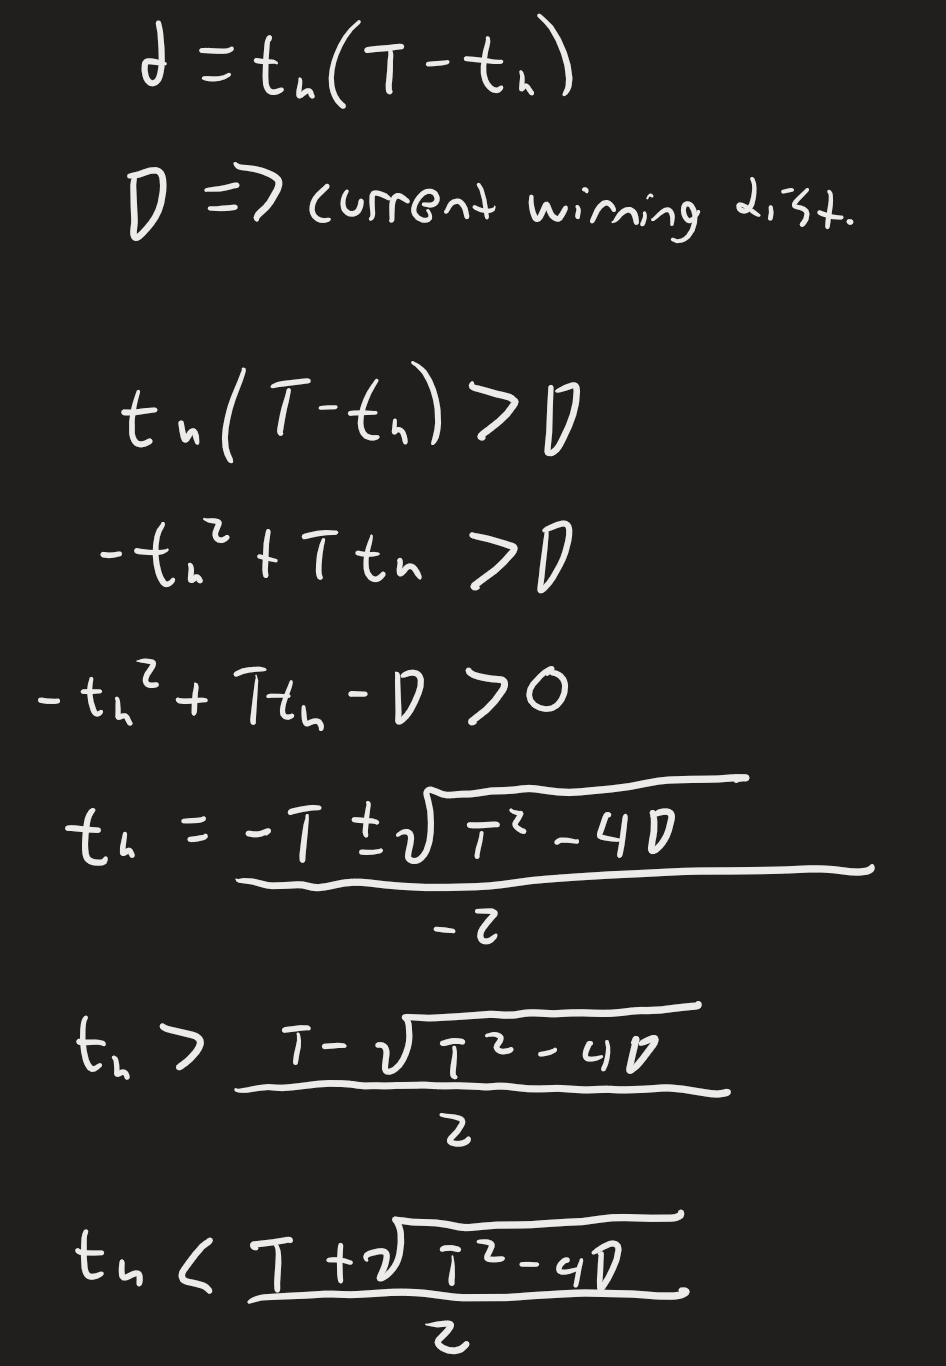 d = tₕ(T - tₕ)
D => current winning dist.
tₕ(T - tₕ) > D
-tₕ² + Ttₕ > D
-tₕ² + Ttₕ - D > 0
tₕ = (-T ± √(T² - 4D)) / -2
tₕ > (T - √(T² - 4D)) / 2
tₕ < (T + √(T² - 4D)) / 2